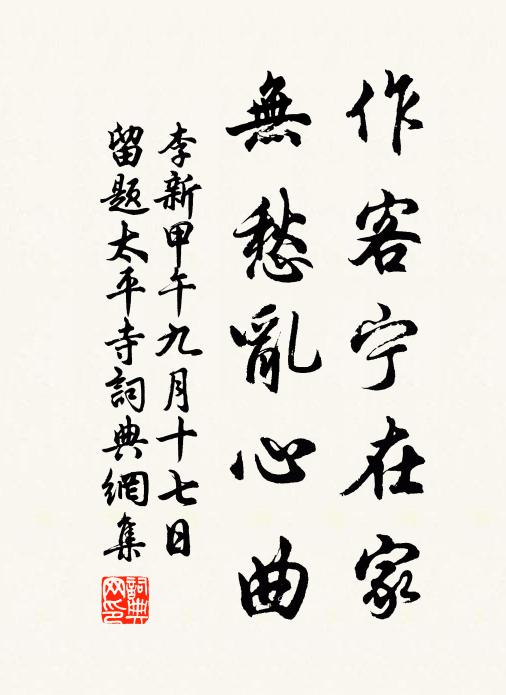 作客宁在家
無愁亂心曲
李新甲午九月十七日
留题太平寺詞典網集
詞典
网印